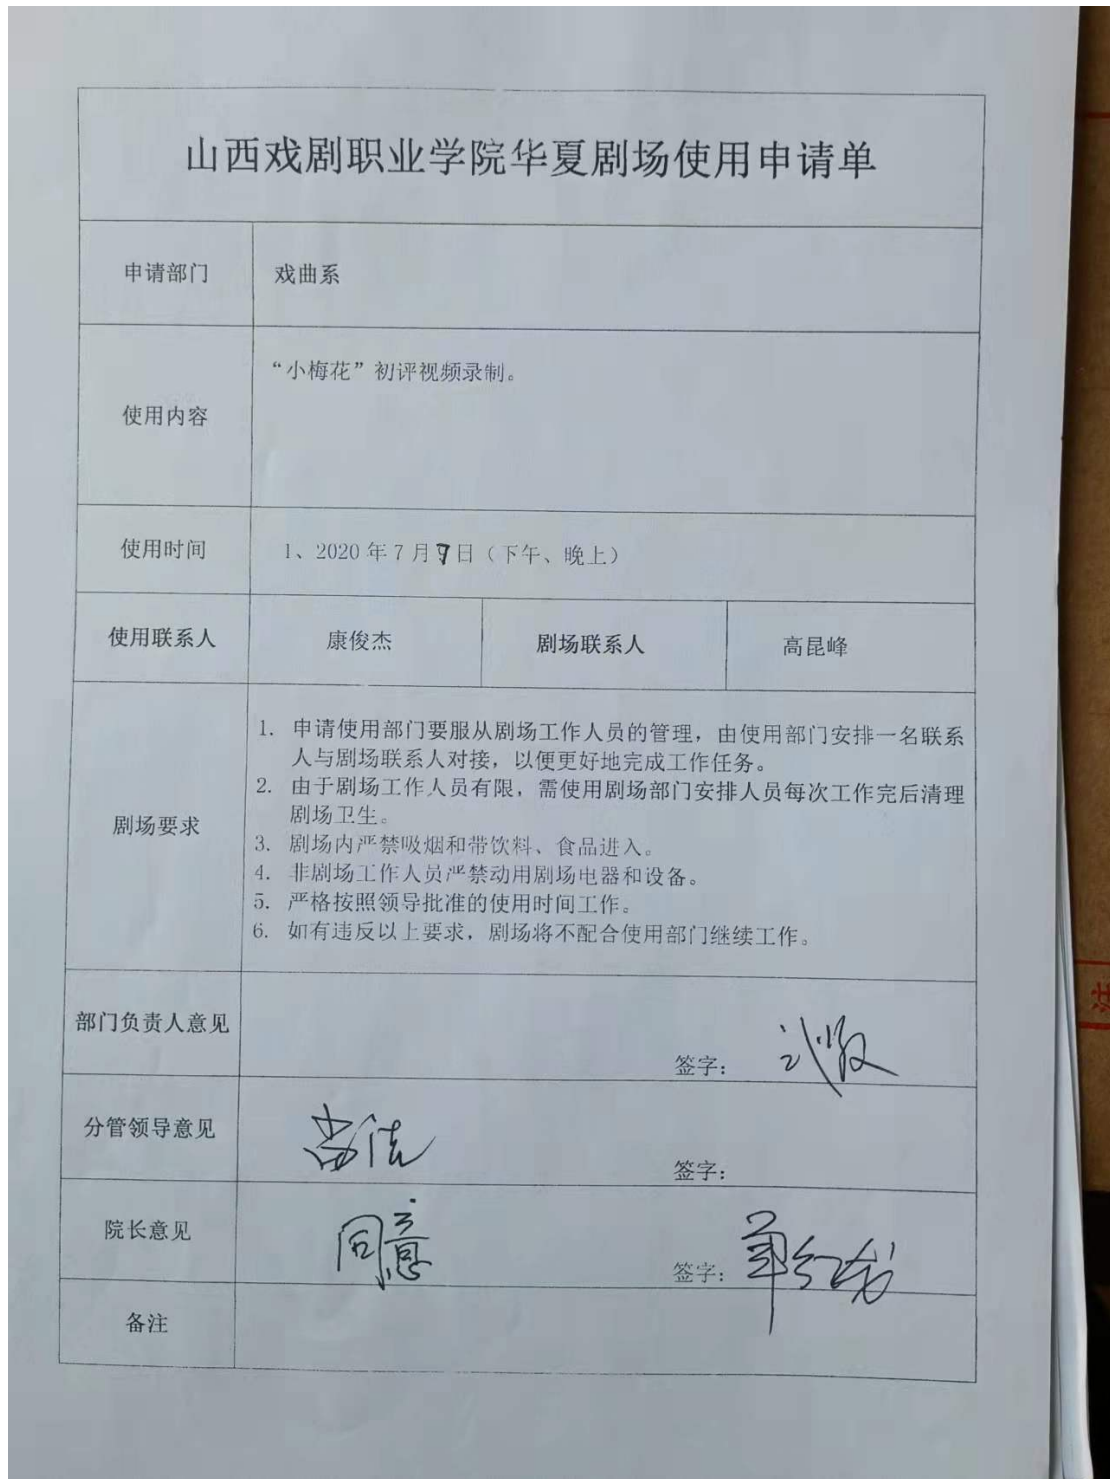 山西戏剧职业学院华夏剧场使用申请单
申请部门 戏曲系
使用内容 “小梅花”初评视频录制。
使用时间 1、2020 年 7 月 日（下午、晚上）
使用联系人 康俊杰 剧场联系人 高昆峰
剧场要求
1. 申请使用部门要服从剧场工作人员的管理，由使用部门安排一名联系
人与剧场联系人对接，以便更好地完成工作任务。
2. 由于剧场工作人员有限，需使用剧场部门安排人员每次工作完后清理
剧场卫生。
3. 剧场内严禁吸烟和带饮料、食品进入。
4. 非剧场工作人员严禁动用剧场电器和设备。
5. 严格按照领导批准的使用时间工作。
6. 如有违反以上要求，剧场将不配合使用部门继续工作。
部门负责人意见 签字：
分管领导意见 签字：
院长意见 同意 签字：
备注
注